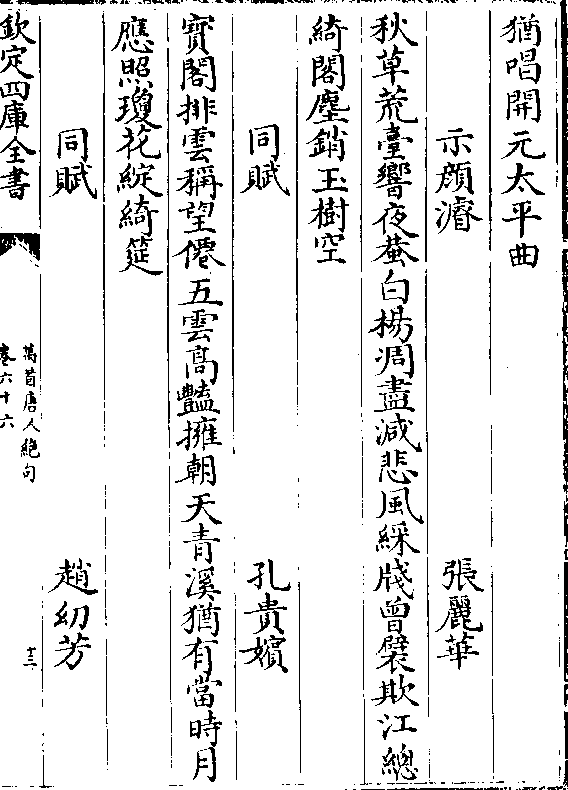 猶唱開元太平曲
示顔濬 張麗華
秋草荒臺響夜蛩白楊凋盡減悲風綵牋曾襞欺江總
綺閣塵銷玉樹空
同賦 孔貴嬪
寳閣排雲稱望僊五雲高豔擁朝天青溪猶有當時月
應照瓊花綻綺筵
同賦 趙幼芳
欽定四庫全書
萬首唐人絶句
卷六十六
十三